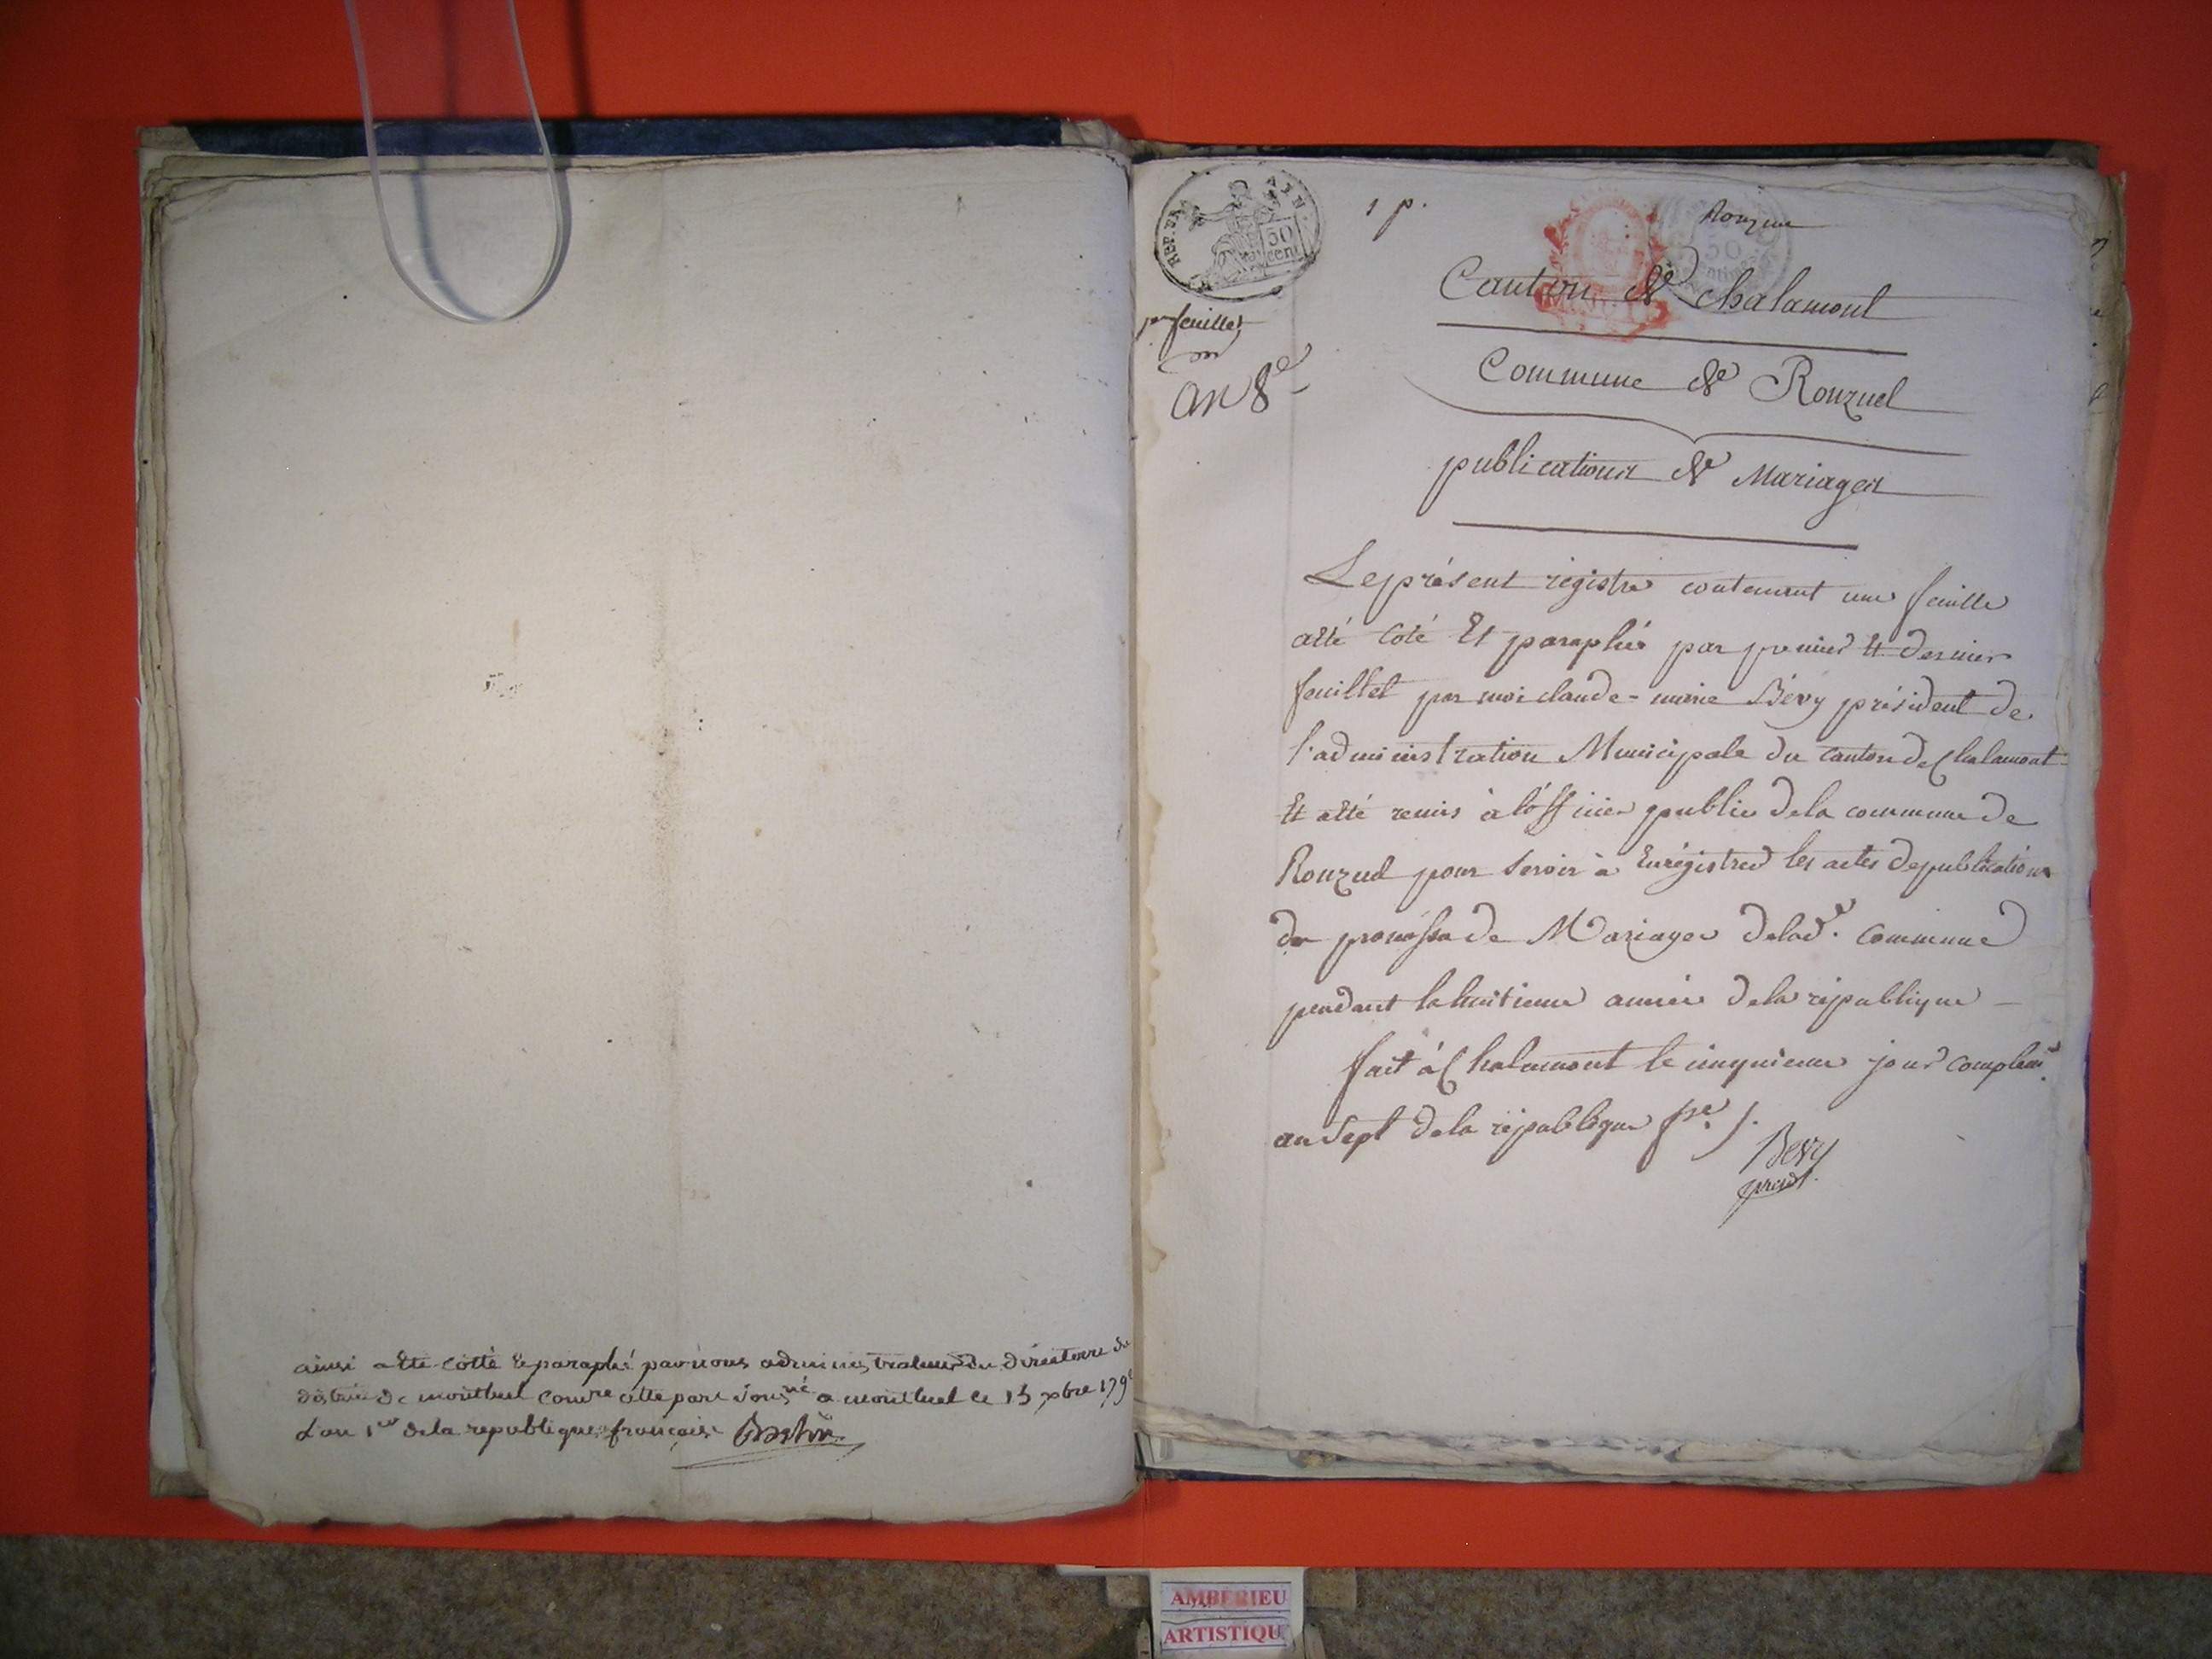 ainsi a été cotté et paraphé par nous administrateur du directoire du
district de montluel comre cette part soussné a montluel le 15 xbre 179
L'an 1er de la republique françoise
REP. FRA. AIN.
50
cent
1 p.
Ronzuel
per feuillet
an 8e
Canton de Chalamont
Commune de Ronzuel
publications de Mariages
Le présent régistre contenant une feuille
a été coté Et paraphé par premier Et dernier
feuillet par moi claude-marie Bévy président de
l'administration Municipale du Canton de Chalamont
Et a été remis à l'officier public de la commune de
Ronzuel pour servir à Enrégistrer les actes de publications
de promesse de Mariages de lad.e Commune
pendant la huitieme année de la république
fait à Chalamont le cinquieme jour complem.
an Sept de la république fse.
Bevy
presdt.
AMBERIEU
ARTISTIQU